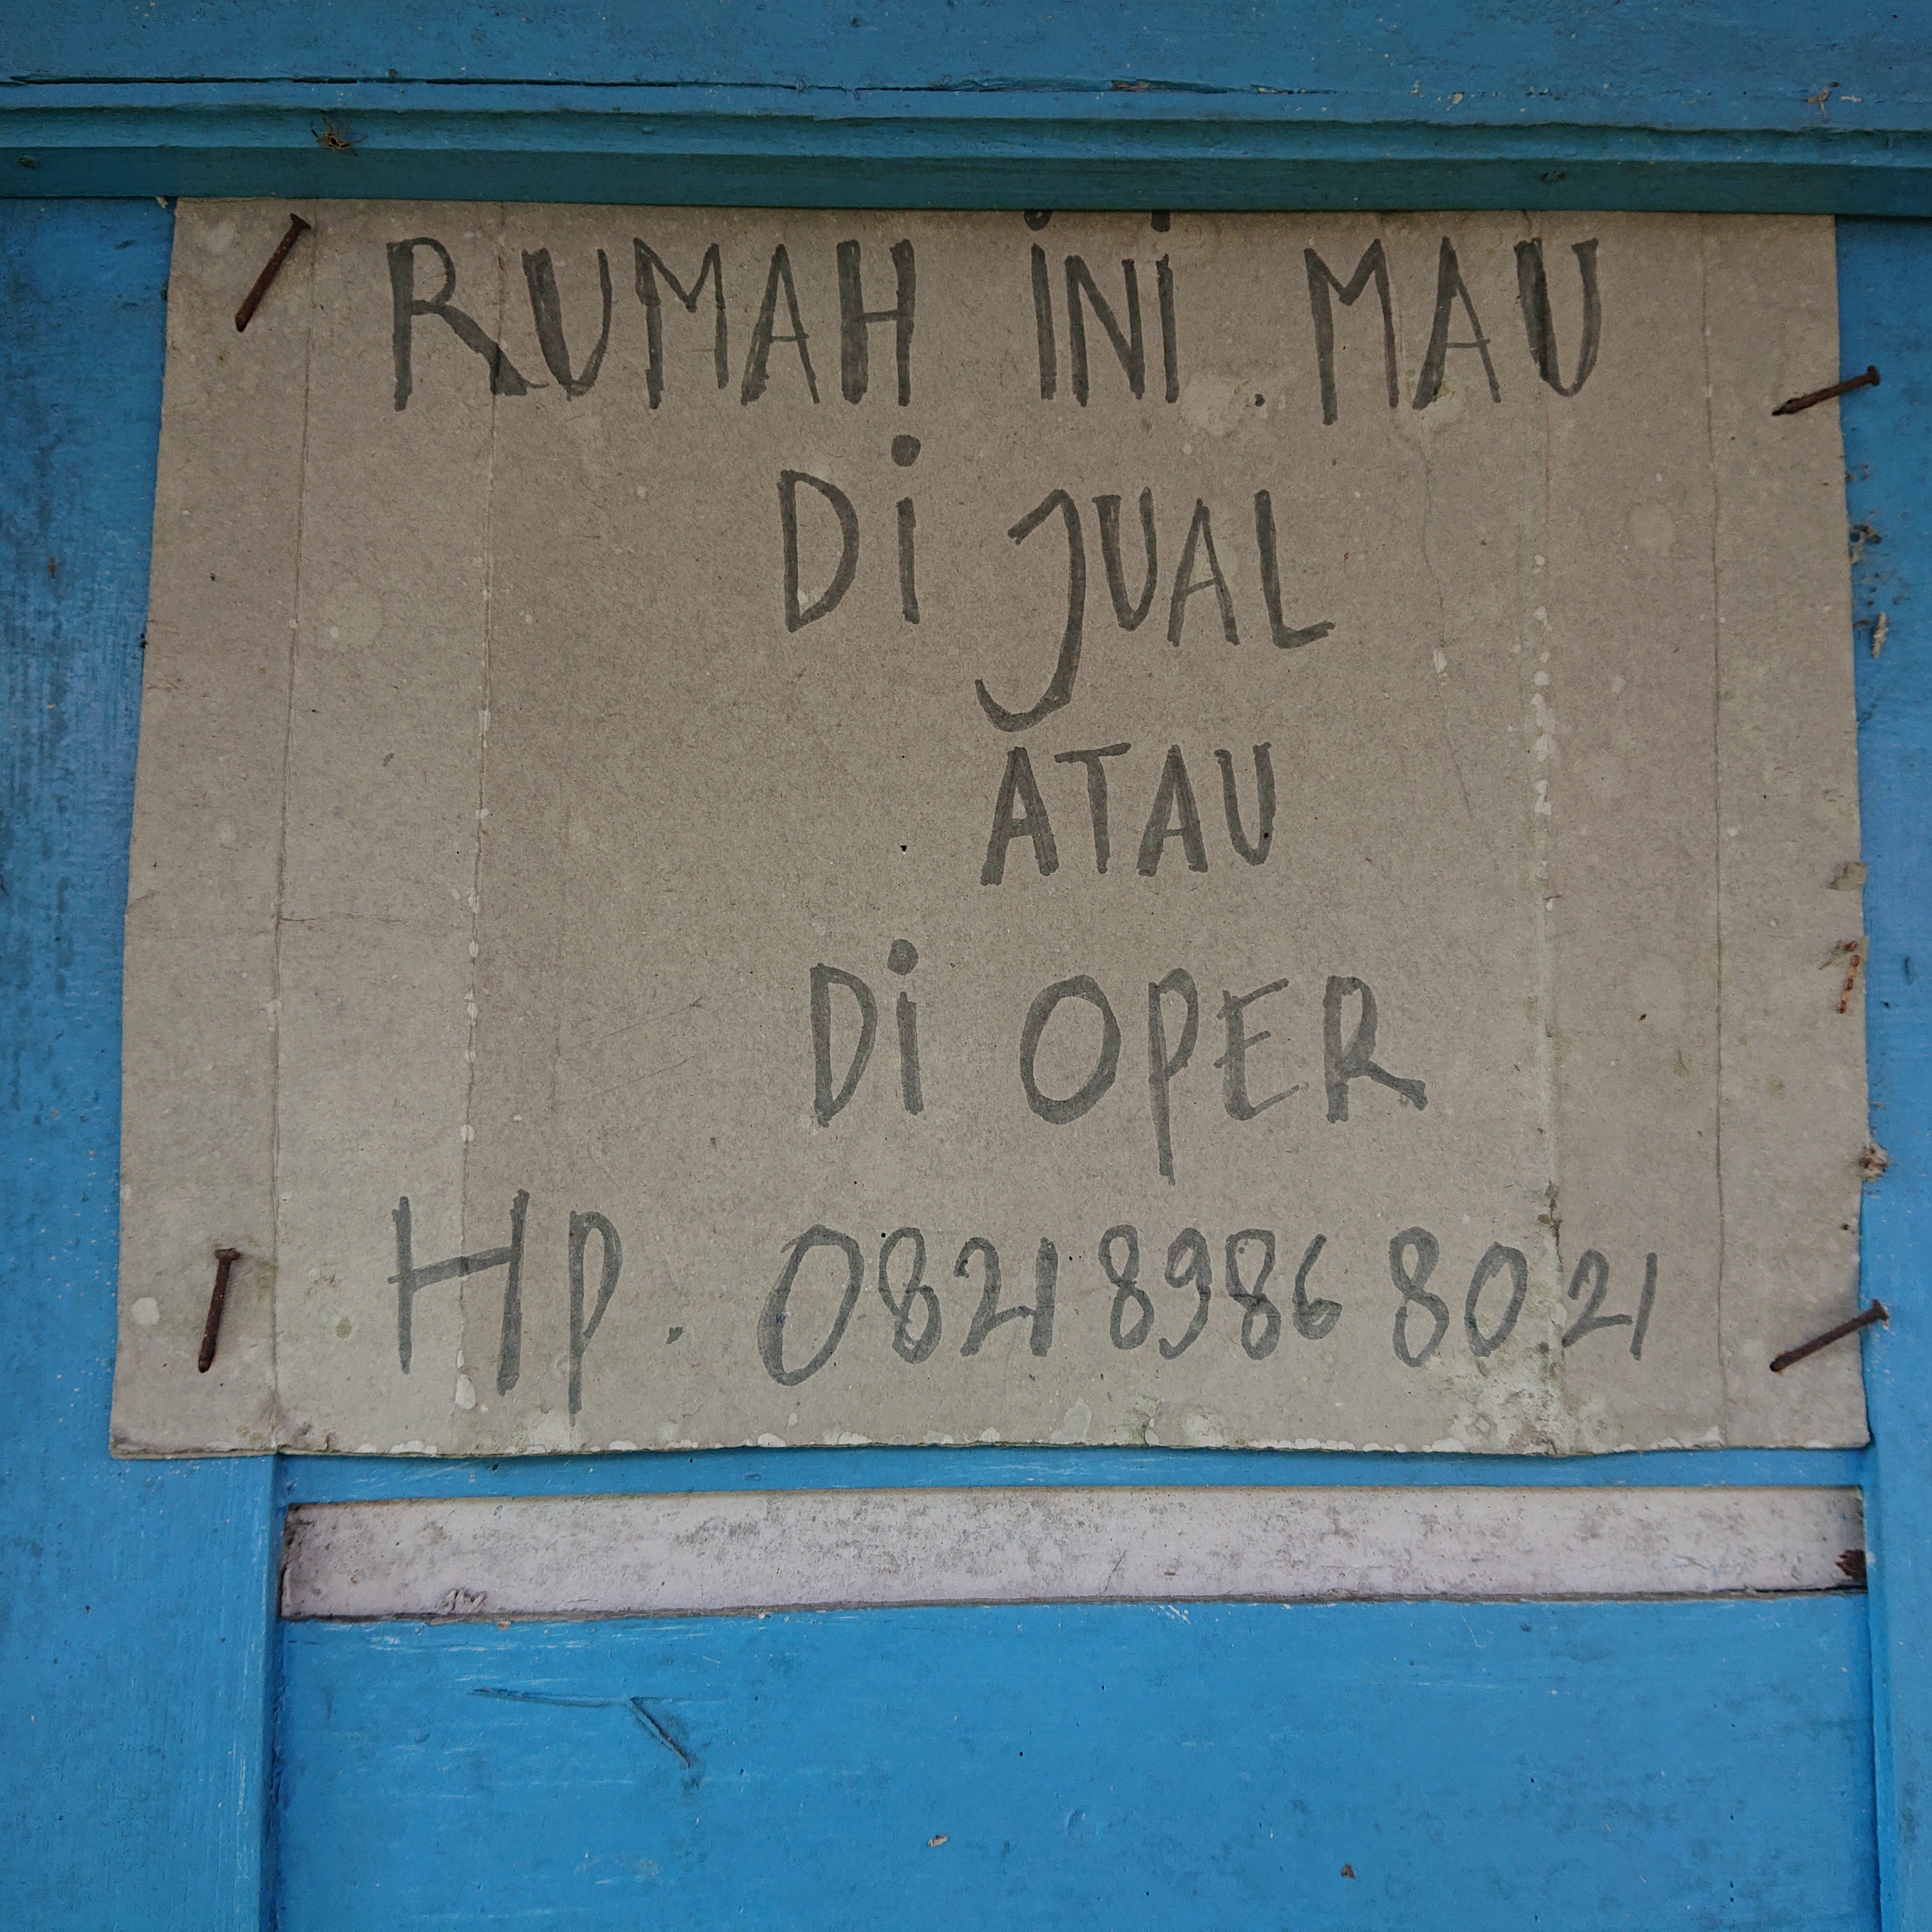 RUMAH iNi. MAU
Di JUAL
ATAU
Di OPER
HP. 0821 8986 8021